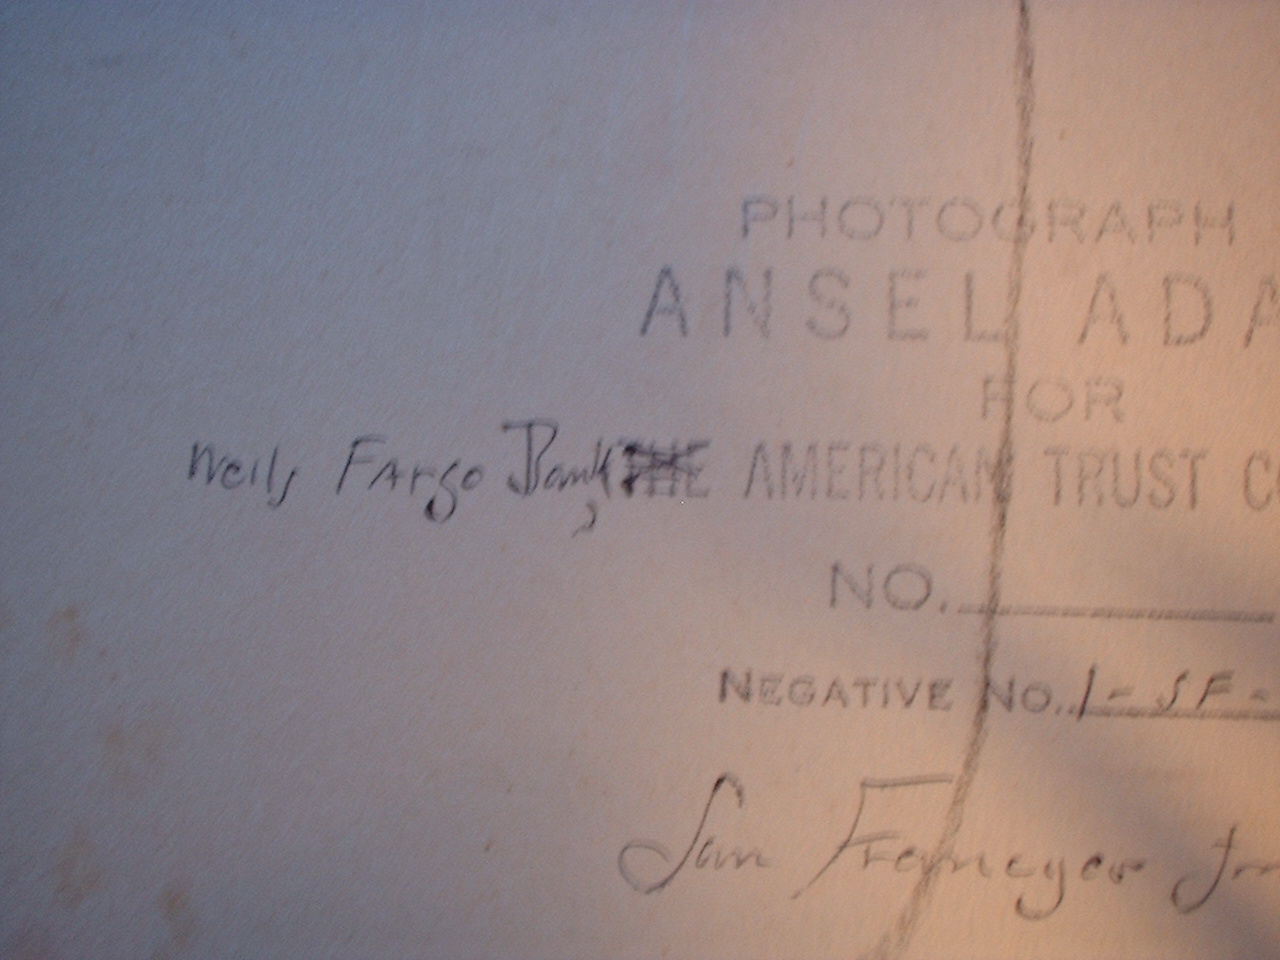 PHOTOGRAPH
ANSEL ADA
FOR
Wells Fargo Bank, THE AMERICAN TRUST C
NO.
NEGATIVE NO. 1-SF-
San